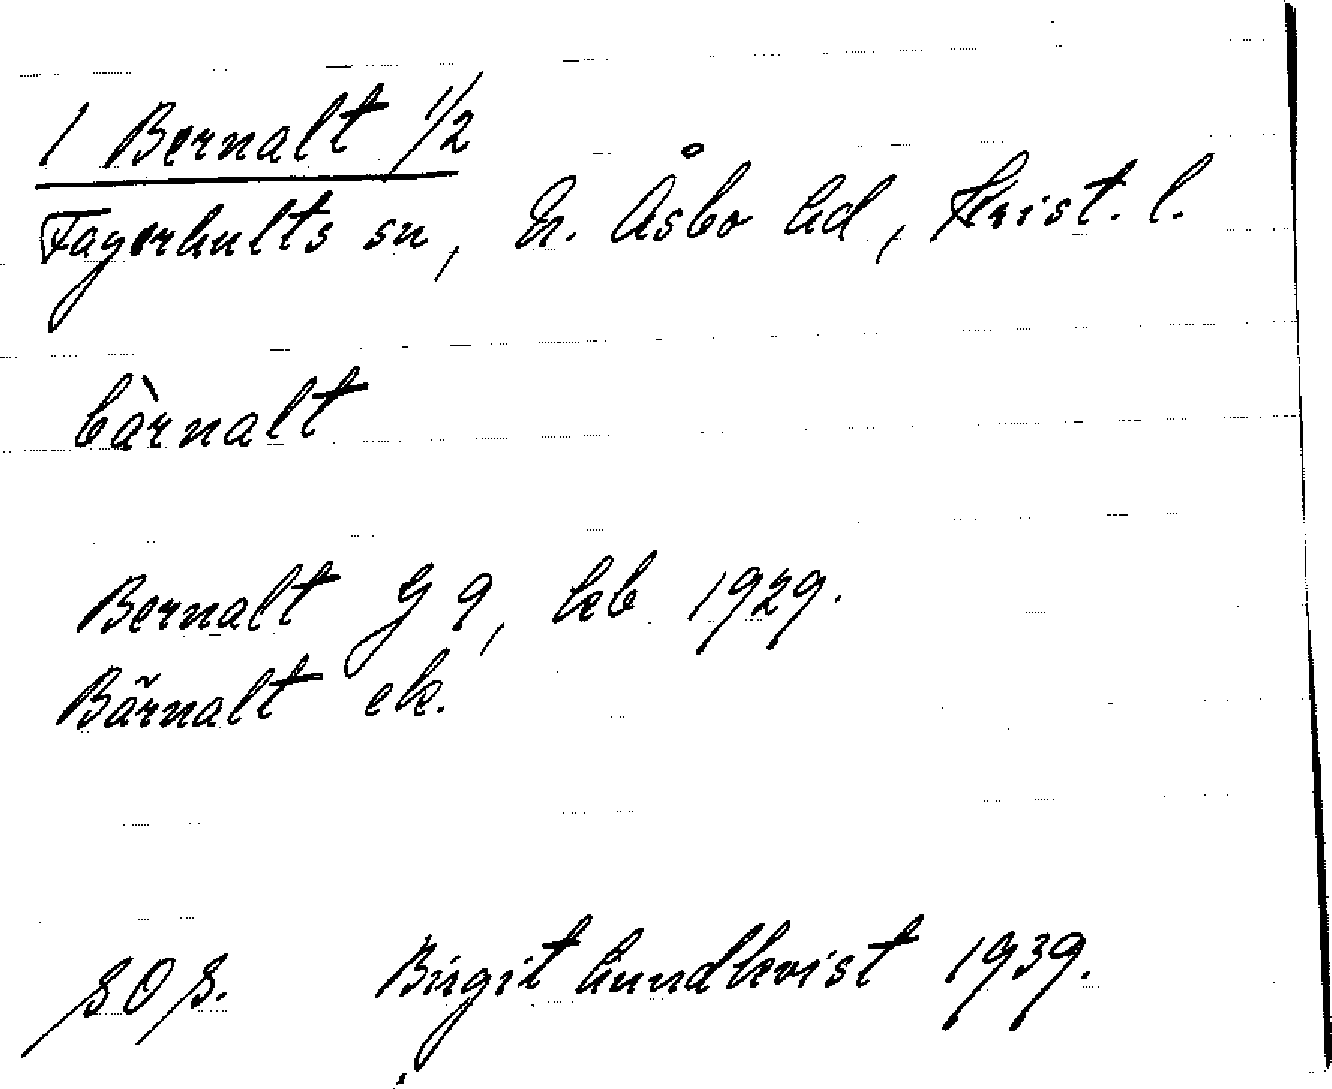 1 Bernalt 1/2
Fagerhults sn, N. Åsbo hd, Krist. l.
bàrnalt
Bernalt G 9, kb 1929.
Bärnalt ek.
SOS. Birgit Lundkvist 1939.